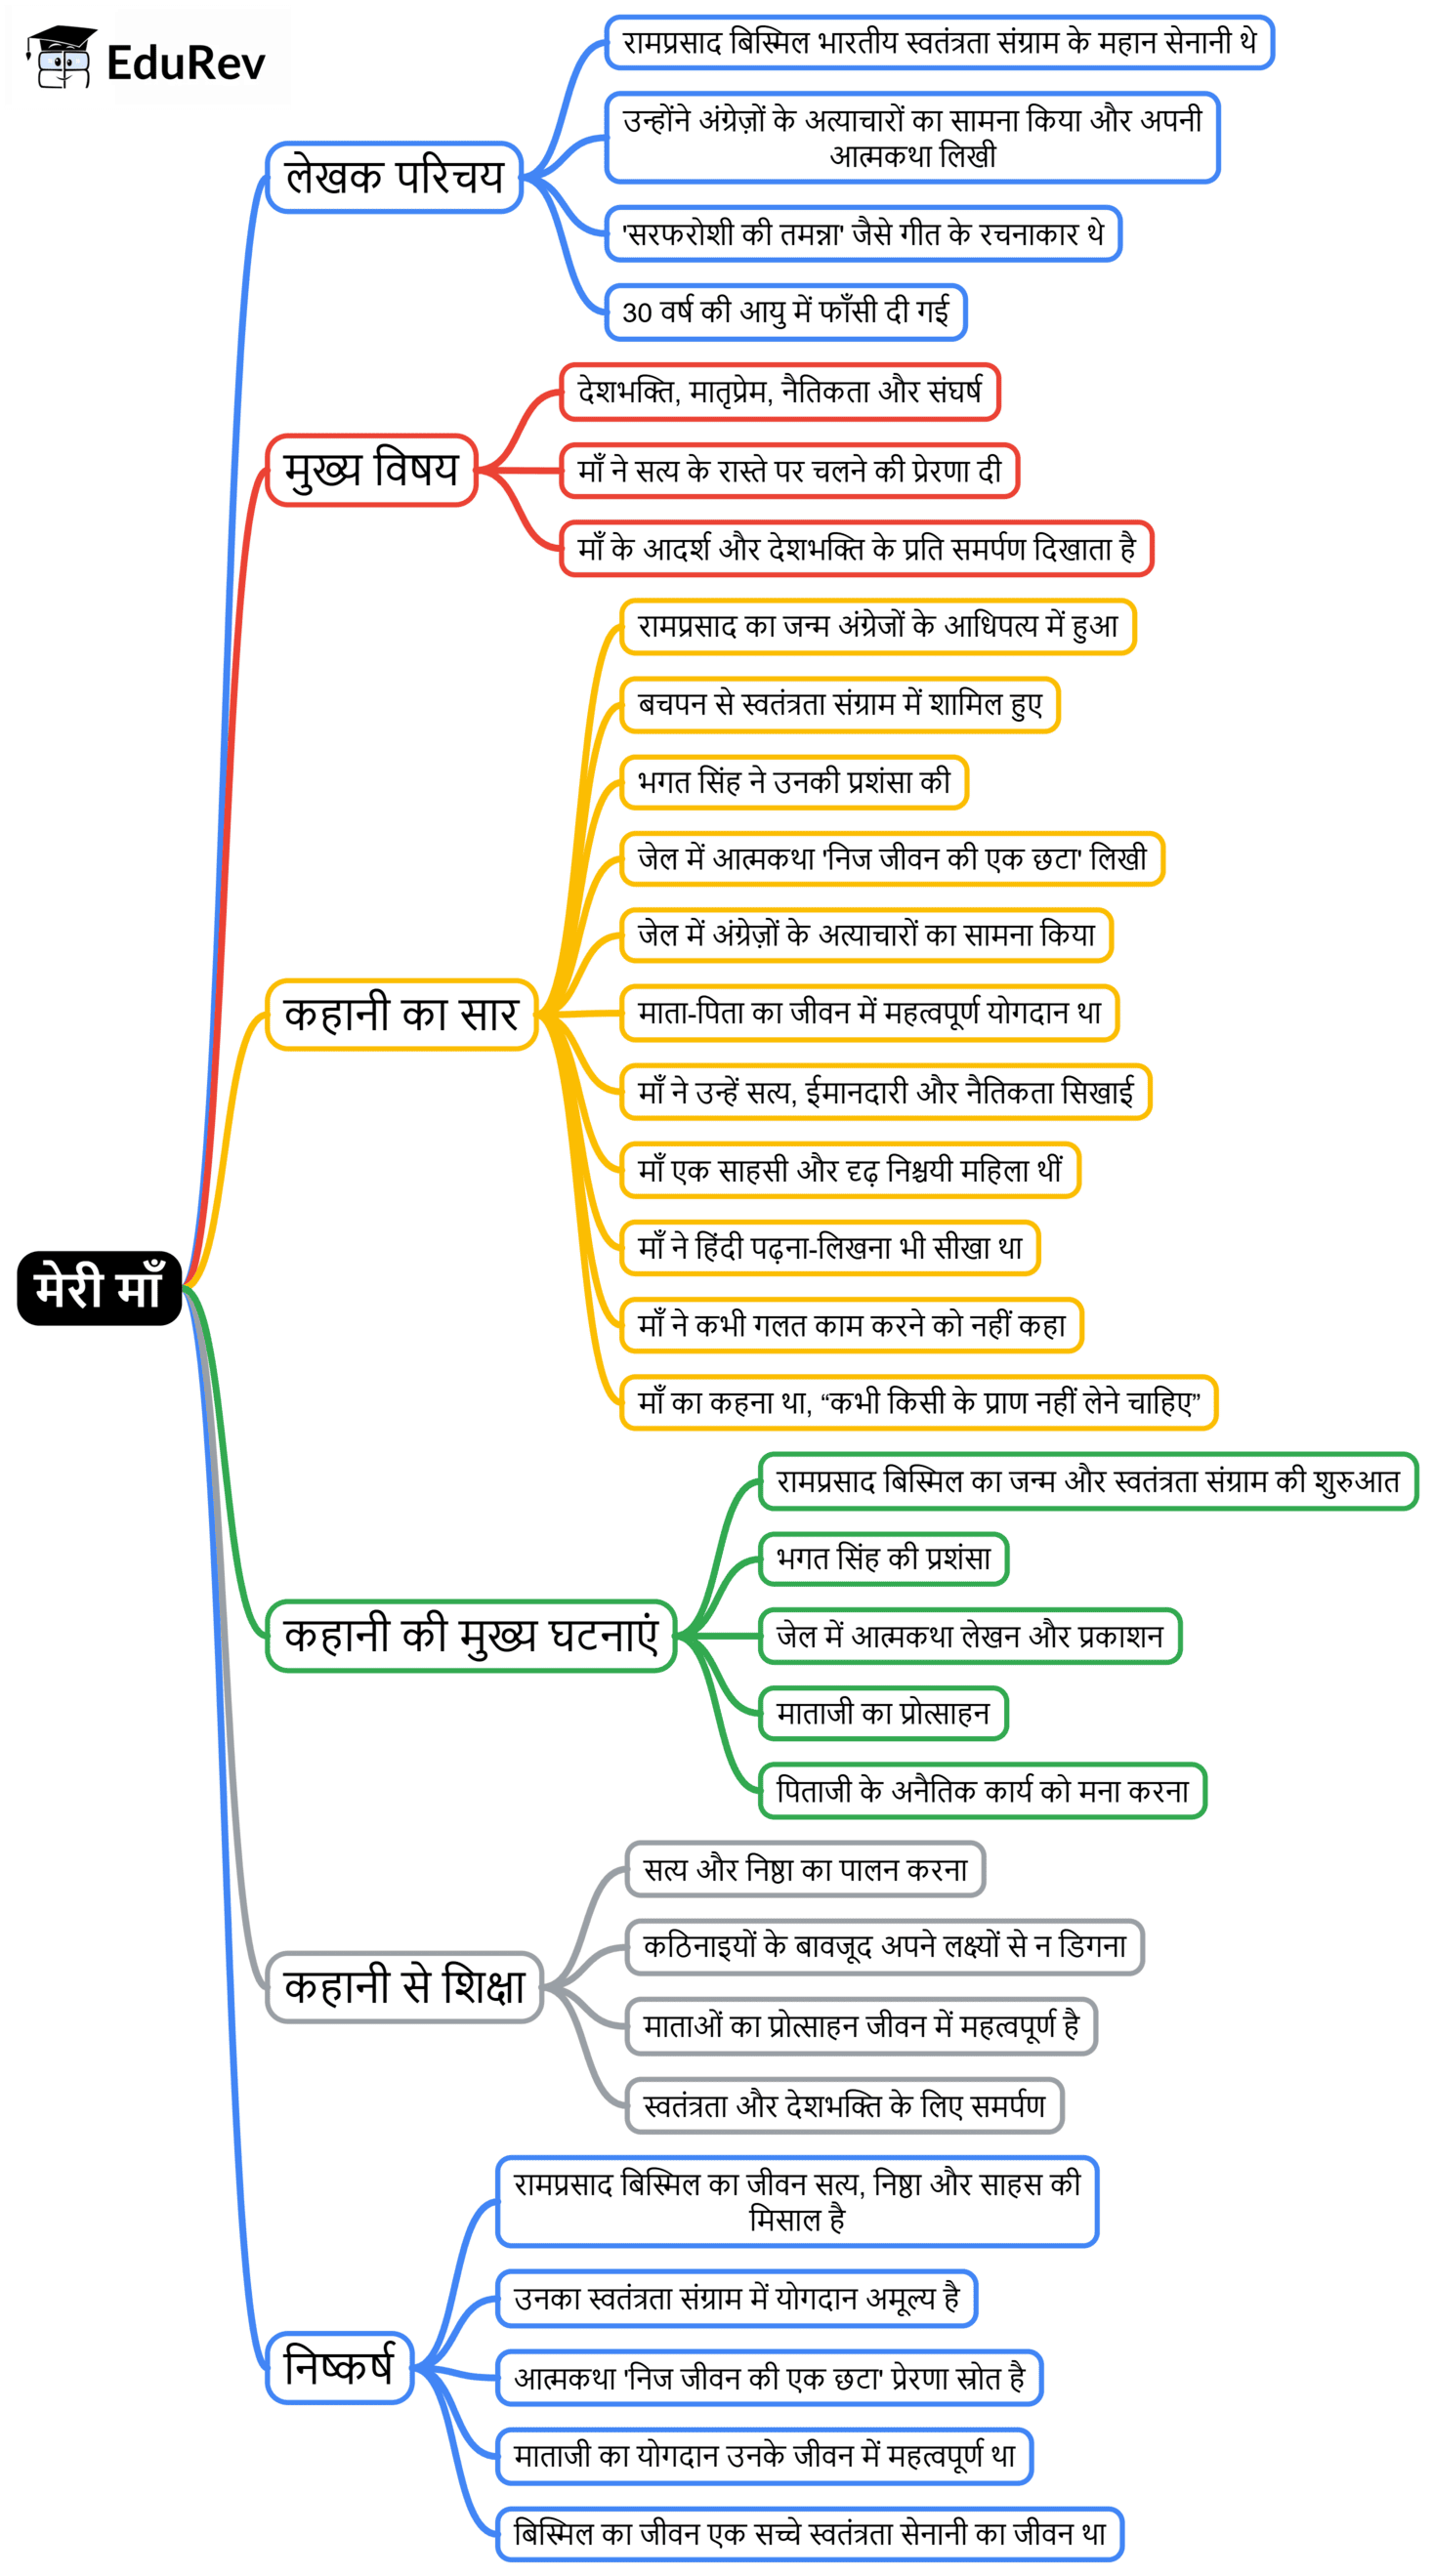 EduRev
रामप्रसाद बिस्मिल भारतीय स्वतंत्रता संग्राम के महान सेनानी थे
उन्होंने अंग्रेज़ों के अत्याचारों का सामना किया और अपनी
आत्मकथा लिखी
लेखक परिचय
'सरफरोशी की तमन्ना' जैसे गीत के रचनाकार थे
30 वर्ष की आयु में फाँसी दी गई
देशभक्ति, मातृप्रेम, नैतिकता और संघर्ष
मुख्य विषय
माँ ने सत्य के रास्ते पर चलने की प्रेरणा दी
माँ के आदर्श और देशभक्ति के प्रति समर्पण दिखाता है
रामप्रसाद का जन्म अंग्रेजों के आधिपत्य में हुआ
बचपन से स्वतंत्रता संग्राम में शामिल हुए
भगत सिंह ने उनकी प्रशंसा की
जेल में आत्मकथा 'निज जीवन की एक छटा' लिखी
जेल में अंग्रेज़ों के अत्याचारों का सामना किया
कहानी का सार
माता-पिता का जीवन में महत्वपूर्ण योगदान था
माँ ने उन्हें सत्य, ईमानदारी और नैतिकता सिखाई
माँ एक साहसी और दृढ़ निश्चयी महिला थीं
माँ ने हिंदी पढ़ना-लिखना भी सीखा था
मेरी माँ
माँ ने कभी गलत काम करने को नहीं कहा
माँ का कहना था, “कभी किसी के प्राण नहीं लेने चाहिए”
रामप्रसाद बिस्मिल का जन्म और स्वतंत्रता संग्राम की शुरुआत
भगत सिंह की प्रशंसा
कहानी की मुख्य घटनाएं
जेल में आत्मकथा लेखन और प्रकाशन
माताजी का प्रोत्साहन
पिताजी के अनैतिक कार्य को मना करना
सत्य और निष्ठा का पालन करना
कठिनाइयों के बावजूद अपने लक्ष्यों से न डिगना
कहानी से शिक्षा
माताओं का प्रोत्साहन जीवन में महत्वपूर्ण है
स्वतंत्रता और देशभक्ति के लिए समर्पण
रामप्रसाद बिस्मिल का जीवन सत्य, निष्ठा और साहस की
मिसाल है
उनका स्वतंत्रता संग्राम में योगदान अमूल्य है
निष्कर्ष
आत्मकथा 'निज जीवन की एक छटा' प्रेरणा स्रोत है
माताजी का योगदान उनके जीवन में महत्वपूर्ण था
बिस्मिल का जीवन एक सच्चे स्वतंत्रता सेनानी का जीवन था